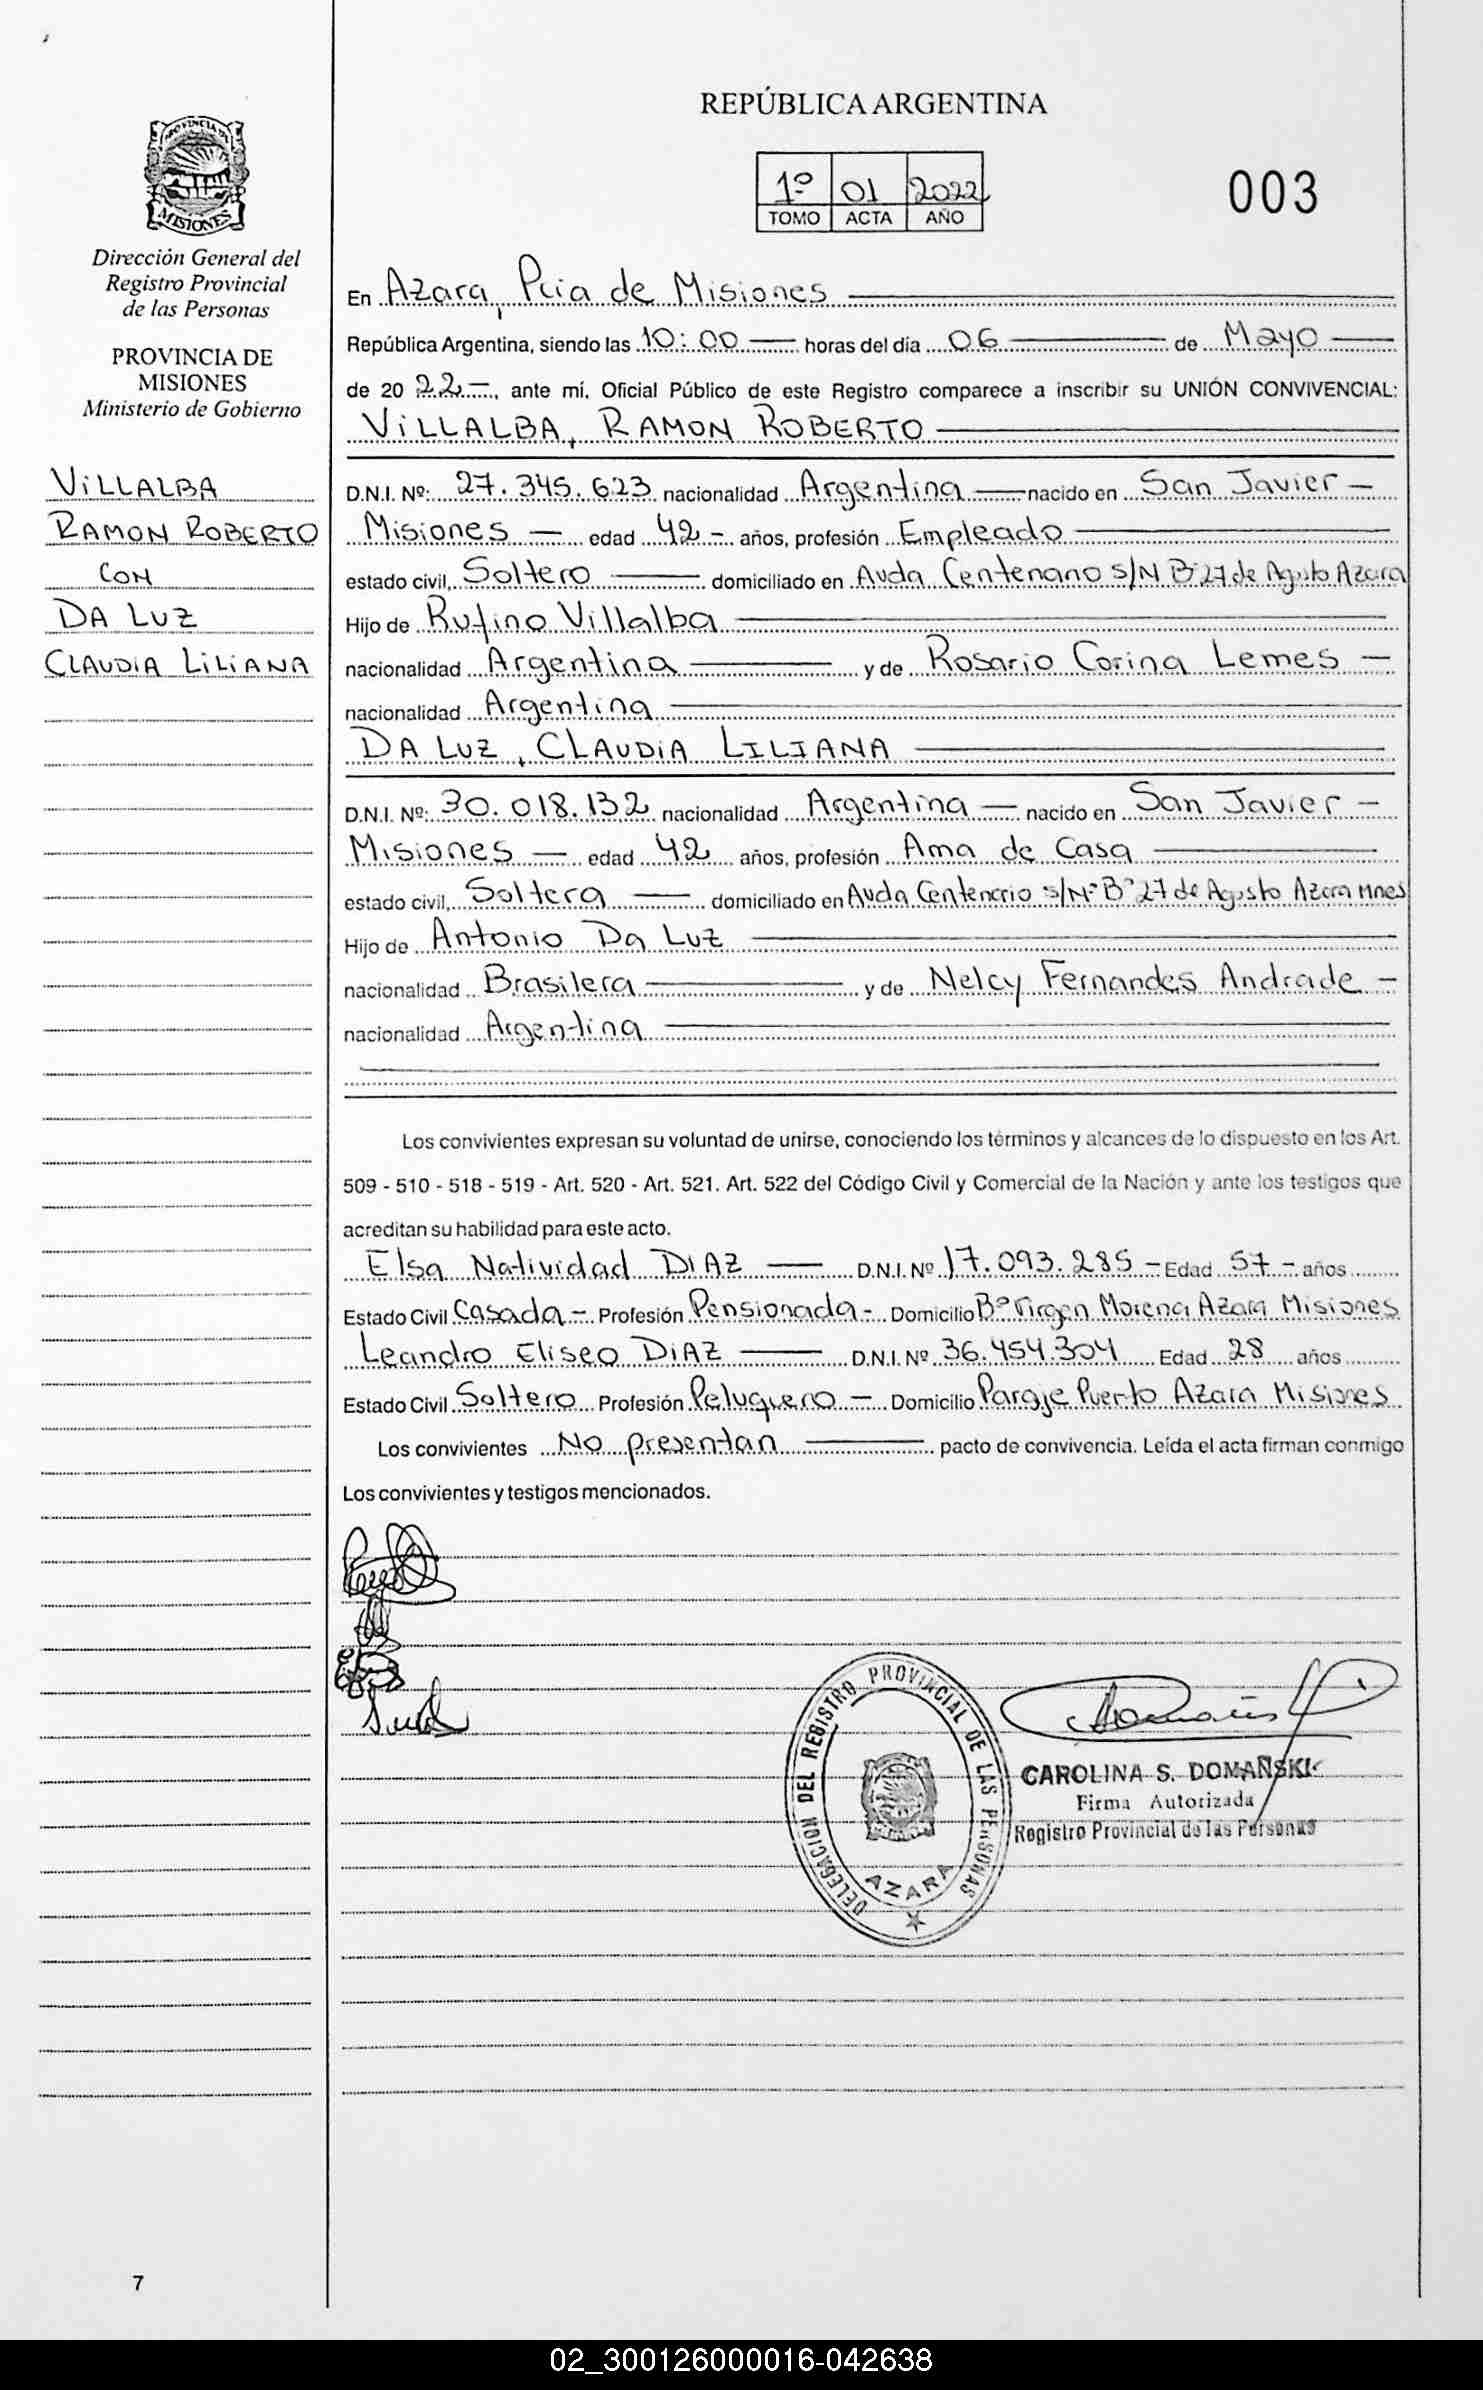 REPÚBLICA ARGENTINA
1º 01 2022
TOMO ACTA AÑO
003
PROVINCIA DE
MISIONES
Dirección General del
Registro Provincial
de las Personas
PROVINCIA DE
MISIONES
Ministerio de Gobierno
VILLALBA
RAMON ROBERTO
CON
DA LUZ
CLAUDIA LILIANA
En Azara, Pcia de Misiones
República Argentina, siendo las 10:00 horas del día 06 de Mayo
de 2022, ante mí, Oficial Público de este Registro comparece a inscribir su UNIÓN CONVIVENCIAL:
VILLALBA, RAMON ROBERTO
D.N.I. Nº: 27.345.623 nacionalidad Argentina nacido en San Javier -
Misiones - edad 42 - años, profesión Empleado
estado civil, Soltero domiciliado en Avda Centenario s/N Bº 27 de Agosto Azara
Hijo de Rufino Villalba
nacionalidad Argentina y de Rosario Corina Lemes -
nacionalidad Argentina
DA LUZ, CLAUDIA LILIANA
D.N.I. Nº: 30.018.132 nacionalidad Argentina - nacido en San Javier -
Misiones - edad 42 años, profesión Ama de Casa
estado civil, Soltera domiciliado en Avda Centenario s/Nº Bº 27 de Agosto Azara Mnes
Hijo de Antonio Da Luz
nacionalidad Brasilera y de Nelcy Fernandes Andrade -
nacionalidad Argentina
Los convivientes expresan su voluntad de unirse, conociendo los términos y alcances de lo dispuesto en los Art.
509 - 510 - 518 - 519 - Art. 520 - Art. 521. Art. 522 del Código Civil y Comercial de la Nación y ante los testigos que
acreditan su habilidad para este acto.
Elsa Natividad DIAZ D.N.I. Nº 17.093.285 - Edad 57 - años
Estado Civil Casada - Profesión Pensionada - Domicilio Bº Virgen Morena Azara Misiones
Leandro Eliseo DIAZ D.N.I. Nº 36.454.304 Edad 28 años
Estado Civil Soltero Profesión Peluquero - Domicilio Paraje Puerto Azara Misiones
Los convivientes No presentan pacto de convivencia. Leída el acta firman conmigo
Los convivientes y testigos mencionados.
DELEGACION DEL REGISTRO PROVINCIAL DE LAS PERSONAS
AZARA
CAROLINA S. DOMAÑSKI
Firma Autorizada
Registro Provincial de las Personas
7
02_300126000016-042638